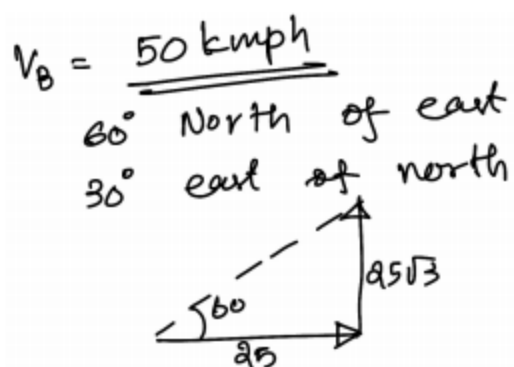 V_B = 50 kmph
60° North of east
30° east of north
60
25√3
25